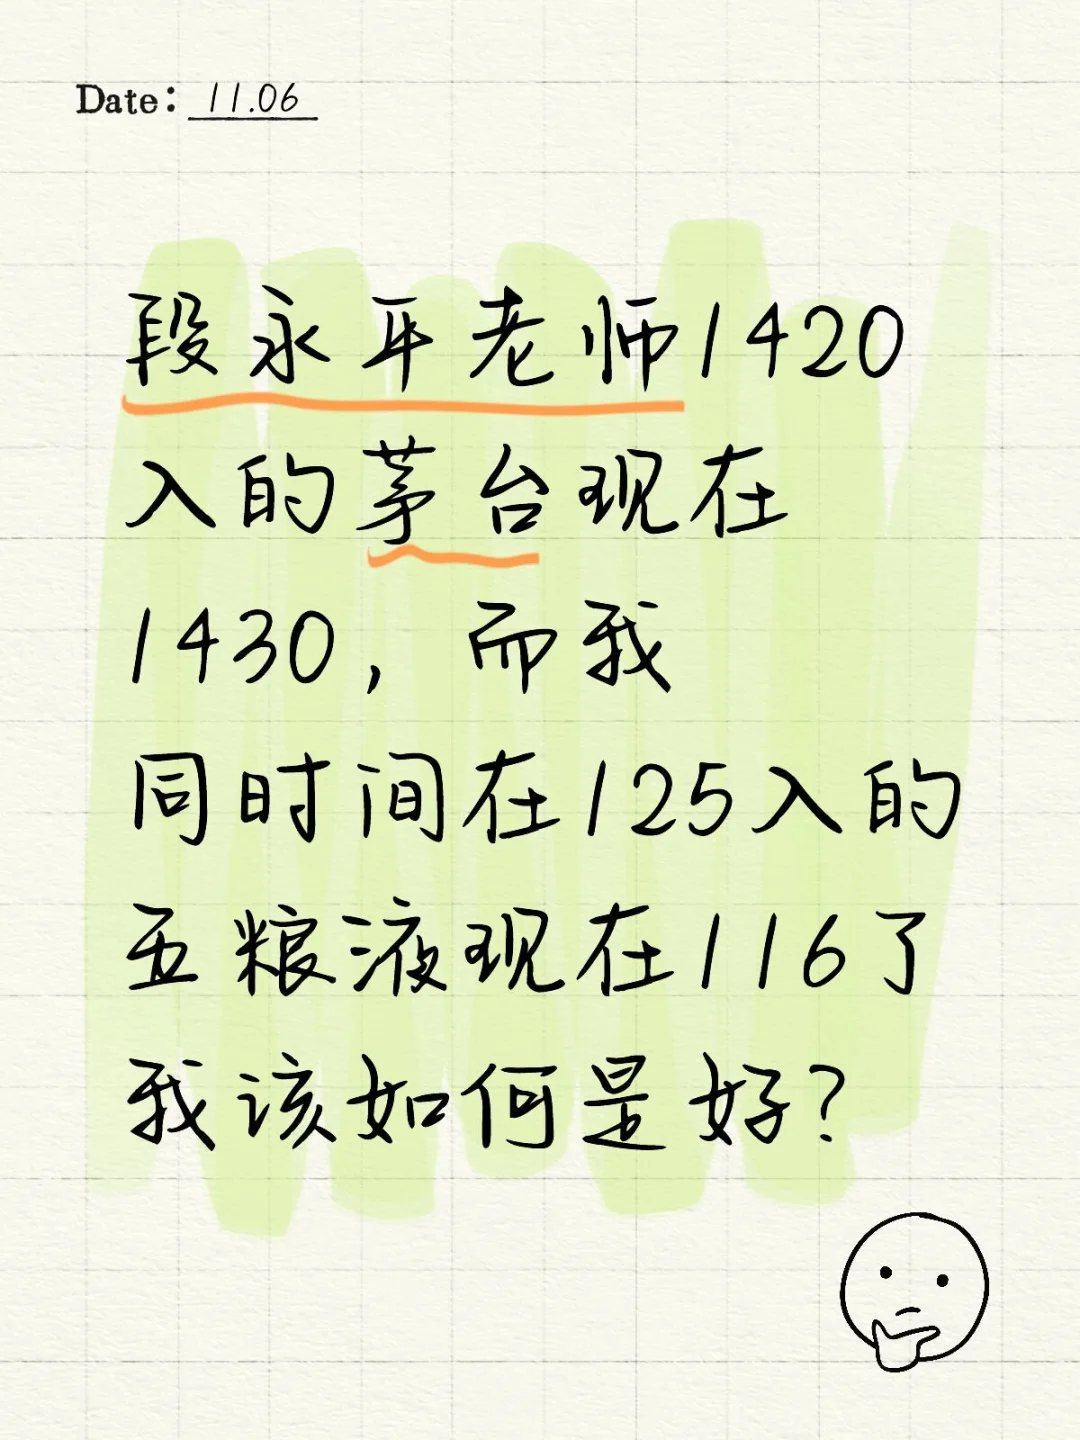 Date: 11.06
段永平老师1420
入的茅台现在
1430，而我
同时间在125入的
五粮液现在116了
我该如何是好？